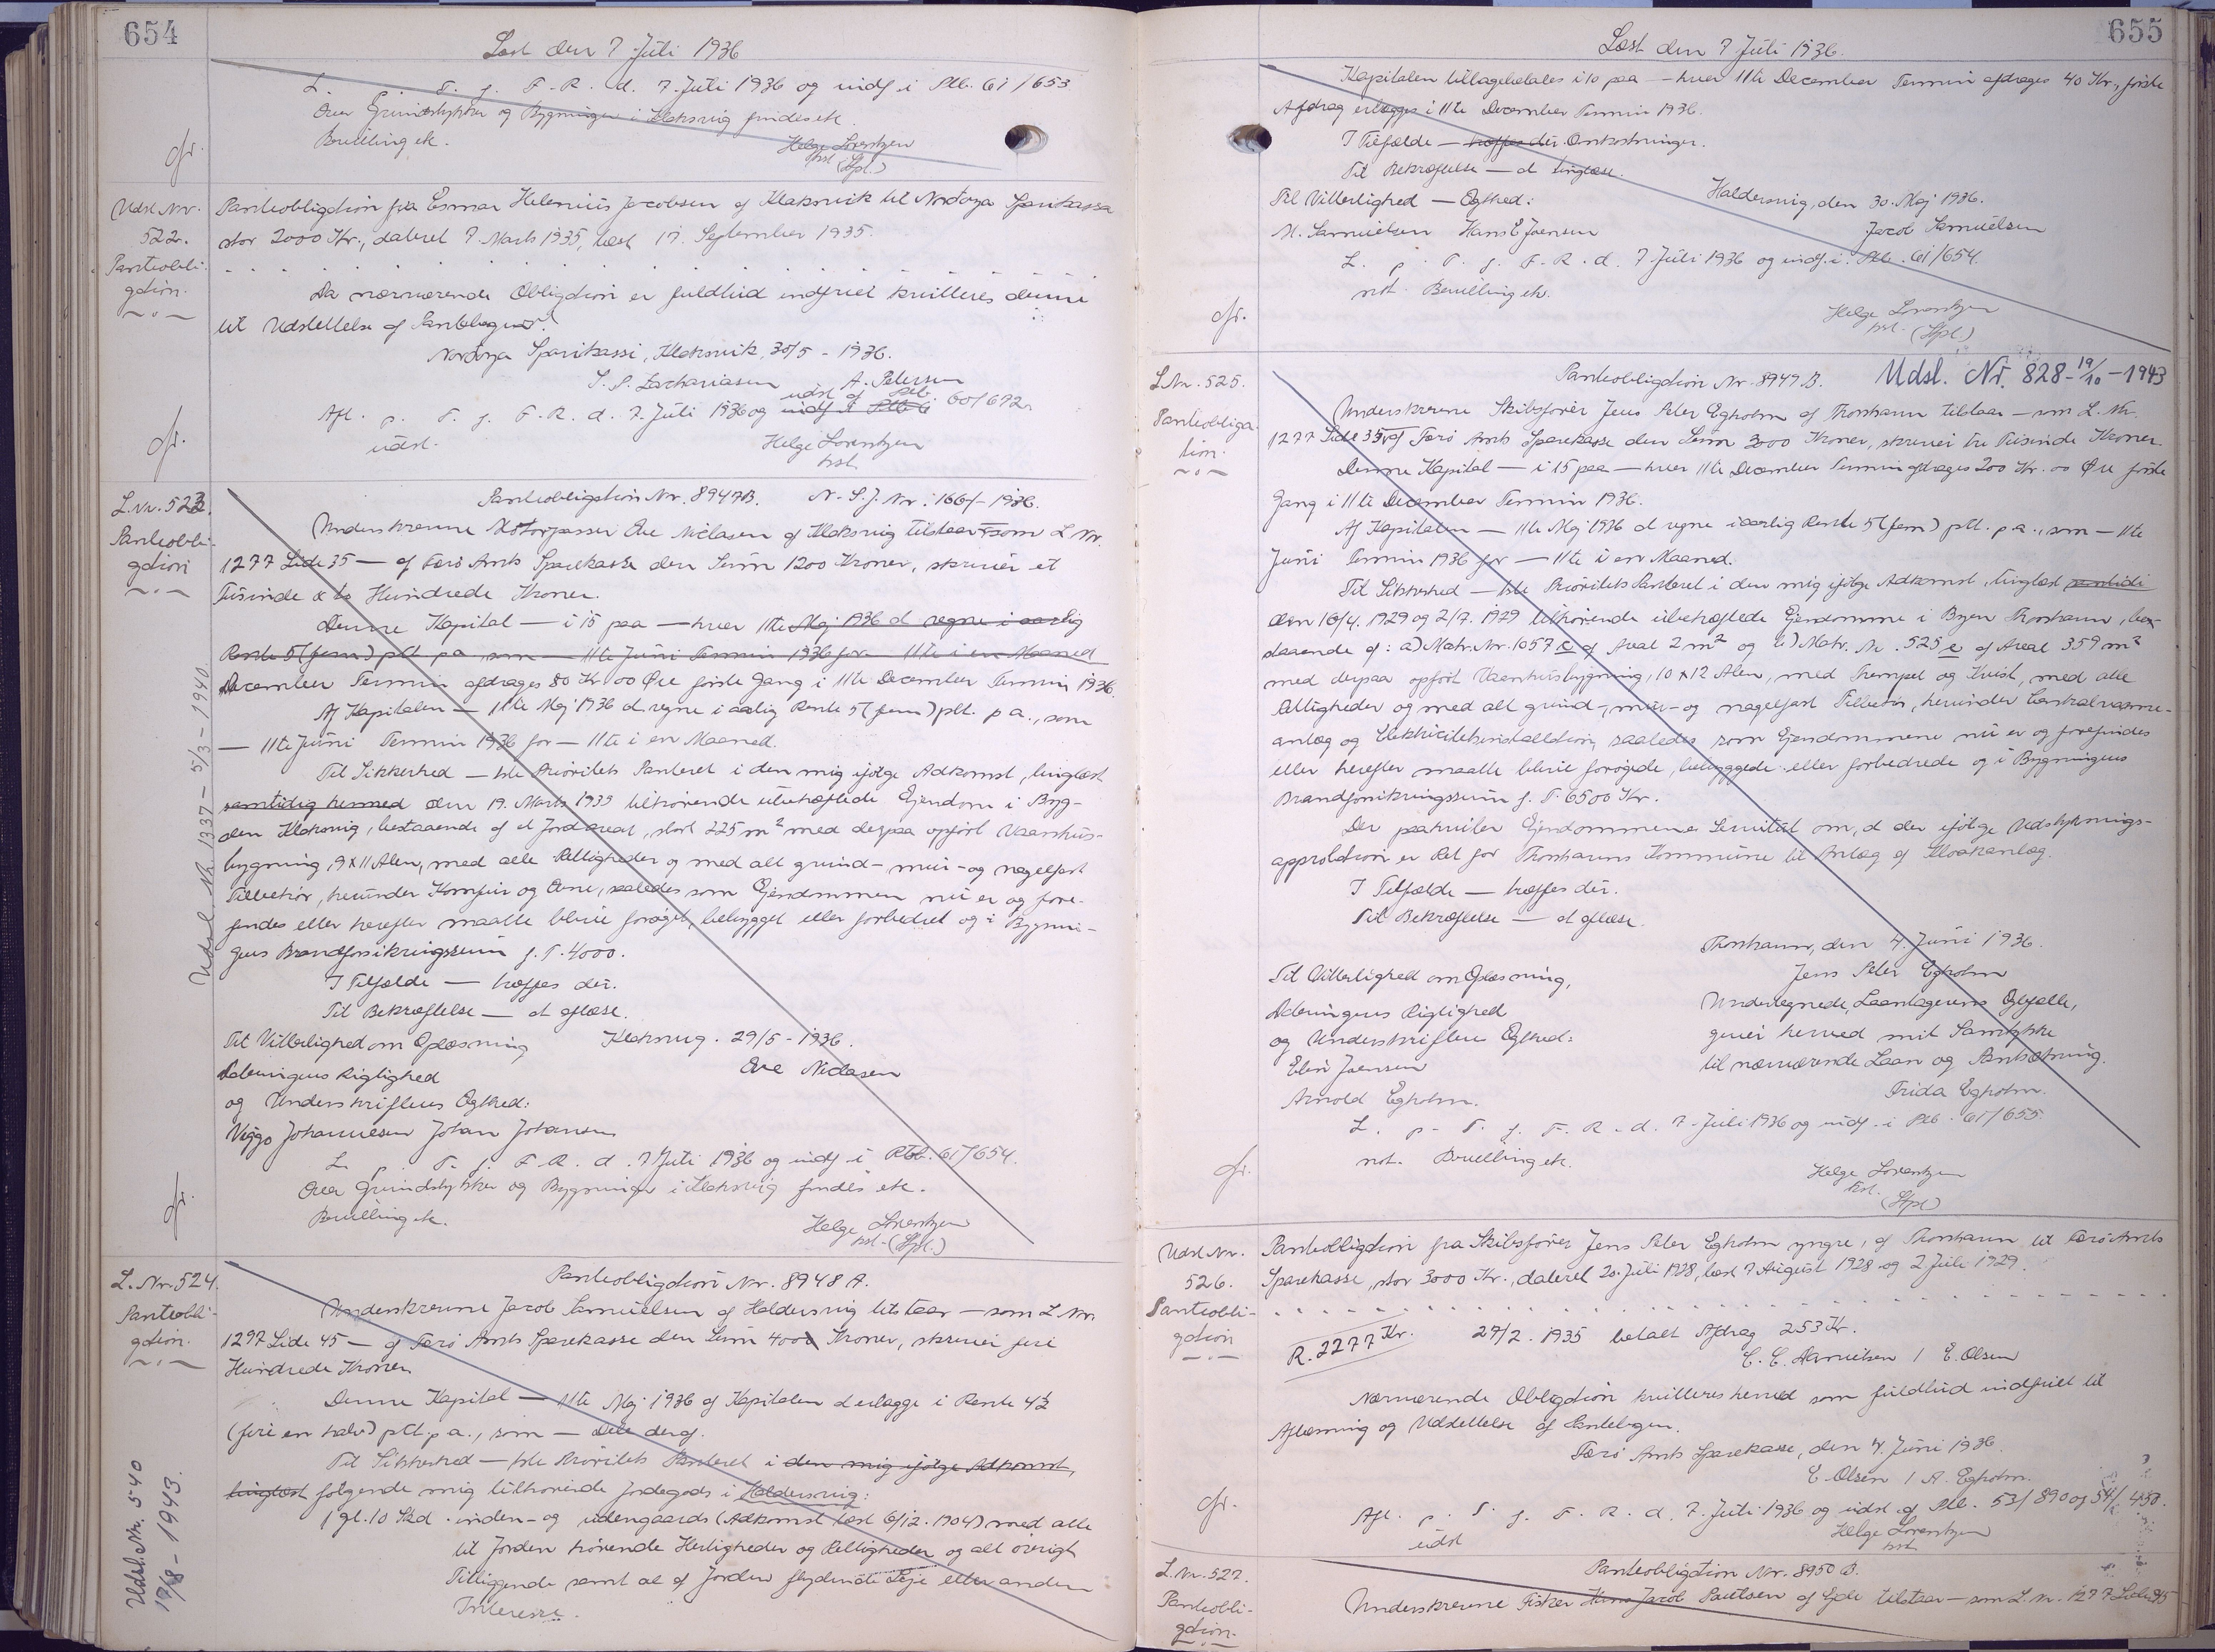 654
Læst den 7 Juli 1936
L. p. T. f. F. R. d. 7. Juli 1936 og indf. i Ptb. 61/653
Over Grundstykker og Bygninger i Klaksvig findes etc.
Bevilling etc.
Helge Lorentzen
hst (Stpl.)
cfr.
Udsl Nr.
522.
Panteobli-
gation.
Panteobligation fra Esmar Helenius Jacobsen af Klaksvik til Nordoya Sparikassa
stor 2000 Kr., dateret 7. Marts 1935, læst 17. September 1935.
Da nærværende Obligation er fuldtud indfriet kvitteres denne
til Udslettelse af Pantebogen.
Nordoya Sparikassi, Klaksvik, 30/5 - 1936.
S. P. Zachariasen A. Petersen
Afl. p. T. f. F. R. d. 7 Juli 1936 og indf i Ptb 6 udsl af Ptb 60/692
udsl.
Helge Lorentzen
hst.
cfr.
L. Nr. 523.
Panteobli-
gation
Udsl Nr. 1337 - 5/3 - 1940
Panteobligation Nr. 8947 B. N. S. J. Nr: 1667 - 1936.
Underskrevne Motorpasser Ove Niclasen af Klaksvig tilstaar - som L Nr.
1277 Side 35 — af Færø Amts Sparekasse den Sum 1200 Kroner, skriver et
Tusinde & to Hundrede Kroner.
Denne Kapital — i 15 paa — hver 11te Maj 1936 at regne i aarlig
Rente 5 (fem) pCt. p a, som — 11te Juni Termin 1936 for — 11te i en Maaned
December Termin afdrages 80 Kr 00 Øre første Gang i 11te December Termin 1936
Af Kapitalen — 11te Maj 1936 at regne i aarlig Rente 5 (fem) pCt. p a., som
— 11te Juni Termin 1936 for — 11te i en Maaned.
Til Sikkerhed — 1ste Prioritets Panteret i den mig ifølge Adkomst, tinglæst
samtidig hermed den 19. Marts 1933 tilhørende ubehæftede Ejendom i Byg-
den Klaksvig, bestaaende af et Jordareal, stort 225 m² med derpaa opført Vaanhus-
bygning, 9 x 11 Alen, med alle Rettigheder og med alt grund-, mur- og nagelfast
Tilbehør, herunder Komfur og Ovne, saaledes som Ejendommen nu er og fore-
findes eller herefter maatte blive forøget, bebygget eller forbedret og i Bygnin-
gens Brandforsikringssum f. T. 4000.
I Tilfælde — træffes der.
Til Bekræftelse — at aflæse.
Til Vitterlighed om Oplæsning Klaksvig. 29/5 - 1936.
Dateringens Rigtighed Ove Niclasen
og Underskriftens Ægthed:
Viggo Johannesen Johan Johansen
L. p. T. f. F. R. d. 7 Juli 1936 og indf i Ptb. 61/654.
Over Grundstykker og Bygninger i Klaksvig findes etc.
Bevilling etc.
Helge Lorentzen
hst. (Stpl.)
cfr.
L. Nr. 524.
Panteobli-
gation.
Udsl. Nr. 540
19/8 - 1943.
Panteobligation Nr. 8948 A.
Underskrevne Jacob Samuelsen af Haldersvig tilstaar — som L Nr.
1297 Side 45 — af Færø Amts Sparekasse den Sum 400 Kroner, skriver fire
Hundrede Kroner
Denne Kapital — 11te Maj 1936 af Kapitalen at erlægge i Rente 4½
(fire en halv) pCt. p a., som — Dele deraf.
Til Sikkerhed — 1ste Prioritets Panteret i den mig ifølge Adkomst,
tinglæst følgende mig tilhørende Jordegods i Haldersvig:
1 gl. 10 Skd. inden- og udengaards (Adkomst læst 6/12. 1904) med alle
til Jorden hørende Herligheder og Rettigheder og alt øvrigt
Tilliggende samt al af Jorden flydende Leje eller anden
Interesse.
655
Læst den 7 Juli 1936.
Kapitalen tilbagebetales i 10 paa — hver 11te December Termin afdrages 40 Kr., første
Afdrag erlægges i 11te December Termin 1936.
I Tilfælde — træffes der. Omkostninger.
Til Bekræftelse — at tinglæse.
Haldersvig, den 30. Maj 1936.
Til Vitterlighed — Ægthed:
M. Samuelsen Hans E Joensen Jacob Samuelsen
L. p. T. f. F. R. d. 7 Juli 1936 og indf. i Ptb. 61/654.
not. Bevilling etc.
Helge Lorentzen
hst. (Stpl.)
cfr.
L. Nr. 525.
Panteobliga-
tion.
Panteobligation Nr. 8949 B. Udsl. Nr. 828 - 19/10 - 1943
Underskrevne Skibsfører Jens Peter Egholm af Thorshavn tilstaar — som L. Nr.
1277 Side 35 af Færø Amts Sparekasse den Sum 3000 Kroner, skriver tre Tusinde Kroner.
Denne Kapital — i 15 paa — hver 11te December Termin afdrages 200 Kr. 00 Øre første
Gang i 11te December Termin 1936.
Af Kapitalen — 11te Maj 1936 at regne i aarlig Rente 5 (fem) pCt. p a., som — 11te
Juni Termin 1936 for — 11te i en Maaned.
Til Sikkerhed — 1ste Prioritets Panteret i den mig ifølge Adkomst, tinglæst samtidi
den 16/4. 1929 og 2/7. 1929 tilhørende ubehæftede Ejendomme i Byen Thorshavn, be-
staaende af: a) Matr. Nr. 1057 c af Areal 2 m² og b) Matr. Nr. 525 e af Areal 359 m²
med derpaa opført Vaanhusbygning, 10 x 12 Alen, med Trempel og Kvist, med alle
Rettigheder og med alt grund-, mur- og nagelfast Tilbehør, herunder Centralvarme-
anlæg og Elektricitetsinstallation, saaledes som Ejendommene nu er og forefindes
eller herefter maatte blive forøgede, bebyggede eller forbedrede og i Bygningens
Brandforsikringssum f. T. 6500 Kr.
Der paahviler Ejendommene Servitut om, at der ifølge Udstyknings-
approbation er Ret for Thorshavns Kommune til Anlæg af Kloakanlæg.
I Tilfælde — træffes der.
Til Bekræftelse — at aflæse.
Thorshavn, den 4. Juni 1936.
Til Vitterlighed om Oplæsning, Jens Peter Egholm
Dateringens Rigtighed Undertegnede, Laantagerens Ægtefælle,
og Underskriftens Ægthed: giver herved mit Samtykke
Elin Joensen til nærværende Laan og Pantsætning.
Arnold Egholm. Frida Egholm.
L. p. T. f. F. R. d. 7. Juli 1936 og indf. i Ptb. 61/655.
not. Bevilling etc.
Helge Lorentzen
hst.
(Stpl)
cfr.
Udsl Nr.
526.
Panteobli-
gation
Panteobligation fra Skibsfører Jens Peter Egholm yngre, af Thorshavn til Færø Amts
Sparekasse, stor 3000 Kr., dateret 20. Juli 1928, læst 7 August 1928 og 2 Juli 1929.
R. 2277 Kr. 27/2. 1935 betalt Afdrag 253 Kr.
E. Olsen
Nærværende Obligation kvitteres herved som fuldtud indfriet til
Aflæsning og Udslettelse af Pantebogen.
Færø Amts Sparekasse, den 4. Juni 1936.
E Olsen / A. Egholm.
Afl. p. T. f. F. R. d. 7. Juli 1936 og udsl. af Ptb. 53/890 og 54/430.
udsl
Helge Lorentzen
hst
cfr.
L. Nr. 527.
Panteobli-
gation.
Panteobligation Nr. 8950 B.
Underskrevne Fisker Hans Jacob Poulsen af Ejde tilstaar — som L. nr. 1277 Side 35